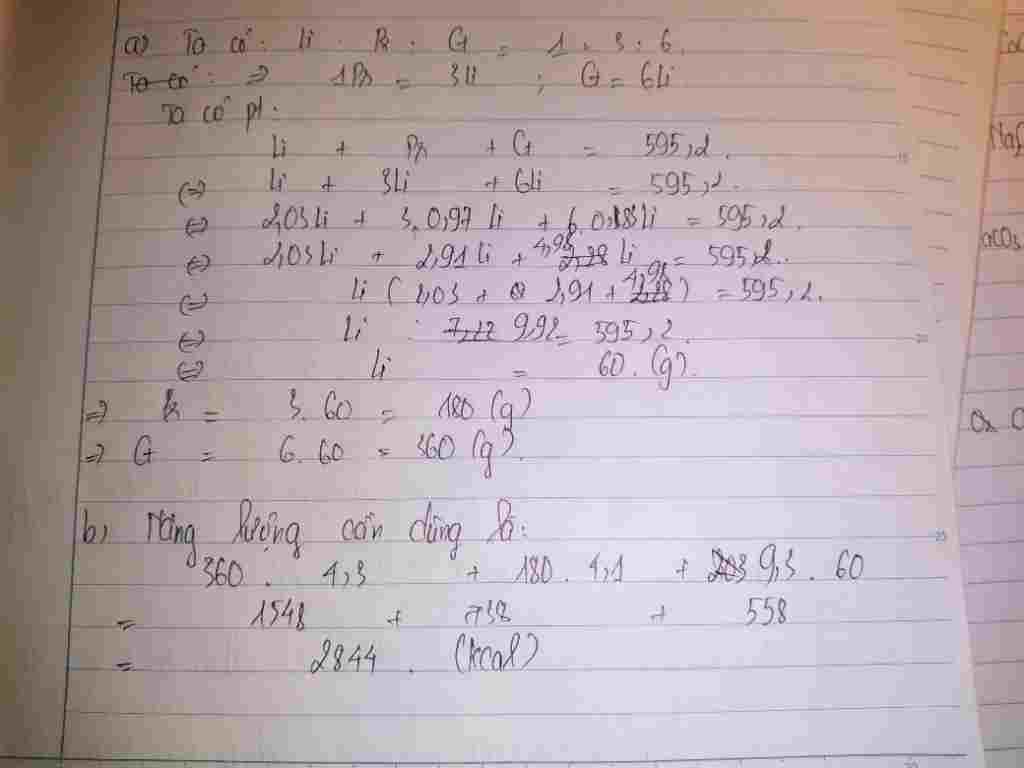 a) Ta có: li : Pr : G = 1 : 3 : 6.
Ta có: => 1Pr = 3li ; G = 6li
Ta có pt:
li + Pr + G = 595,2.
(=) li + 3li + 6li = 595,2.
(=) 2,03li + 3.0,97 li + 6.0,83li = 595,2.
(=) 2,03li + 2,91li + 2,28 4,98 li = 595,2.
(=) li (2,03 + 2,91 + 2,28 4,98) = 595,2.
(=) li : 7,22 9,92 = 595,2.
(=) li = 60.(g).
=> Pr = 3.60 = 180 (g)
=> G = 6.60 = 360 (g).
b) Năng lượng cần dùng là:
360. 4,3 + 180. 4,1 + 203 9,3. 60
= 1548 + 738 + 558
= 2844. (kcal)
20
25
30
Na
aCO3
Ox